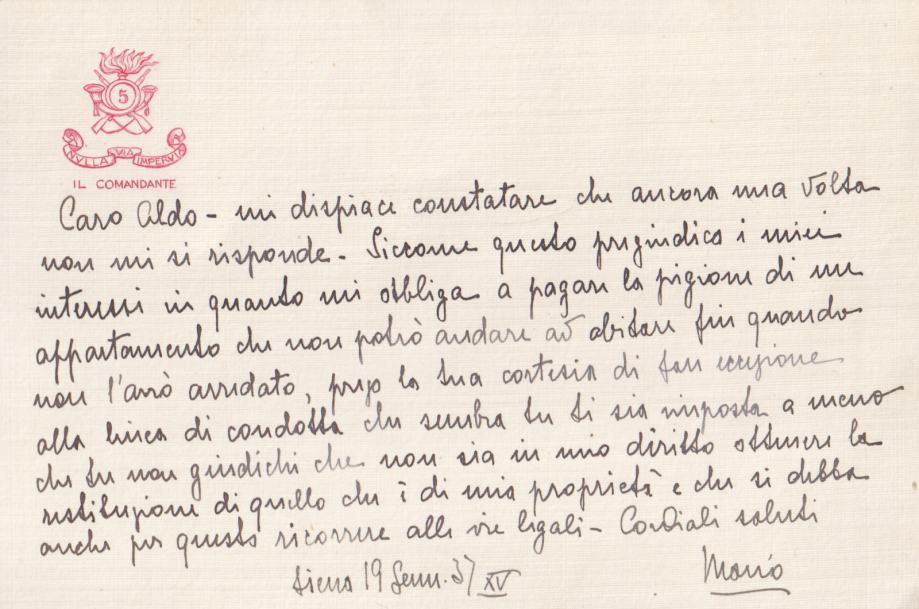 5
NVLLA VIA IMPERVIA
IL COMANDANTE
Caro Aldo - mi dispiace constatare che ancora una volta
non mi si risponde - Siccome questo pregiudica i miei
interessi in quanto mi obbliga a pagare la pigione di un
appartamento che non potrò andare ad abitare fin quando
non l'avrò arredato, prego la tua cortesia di fare eccezione
alla linea di condotta che sembra tu ti sia imposta a meno
che tu non giudichi che non sia in mio diritto ottenere la
restituzione di quello che è di mia proprietà e che si debba
anche per questo ricorrere alle vie legali - Cordiali saluti
Siena 19 Genn. 37 XV
Mario